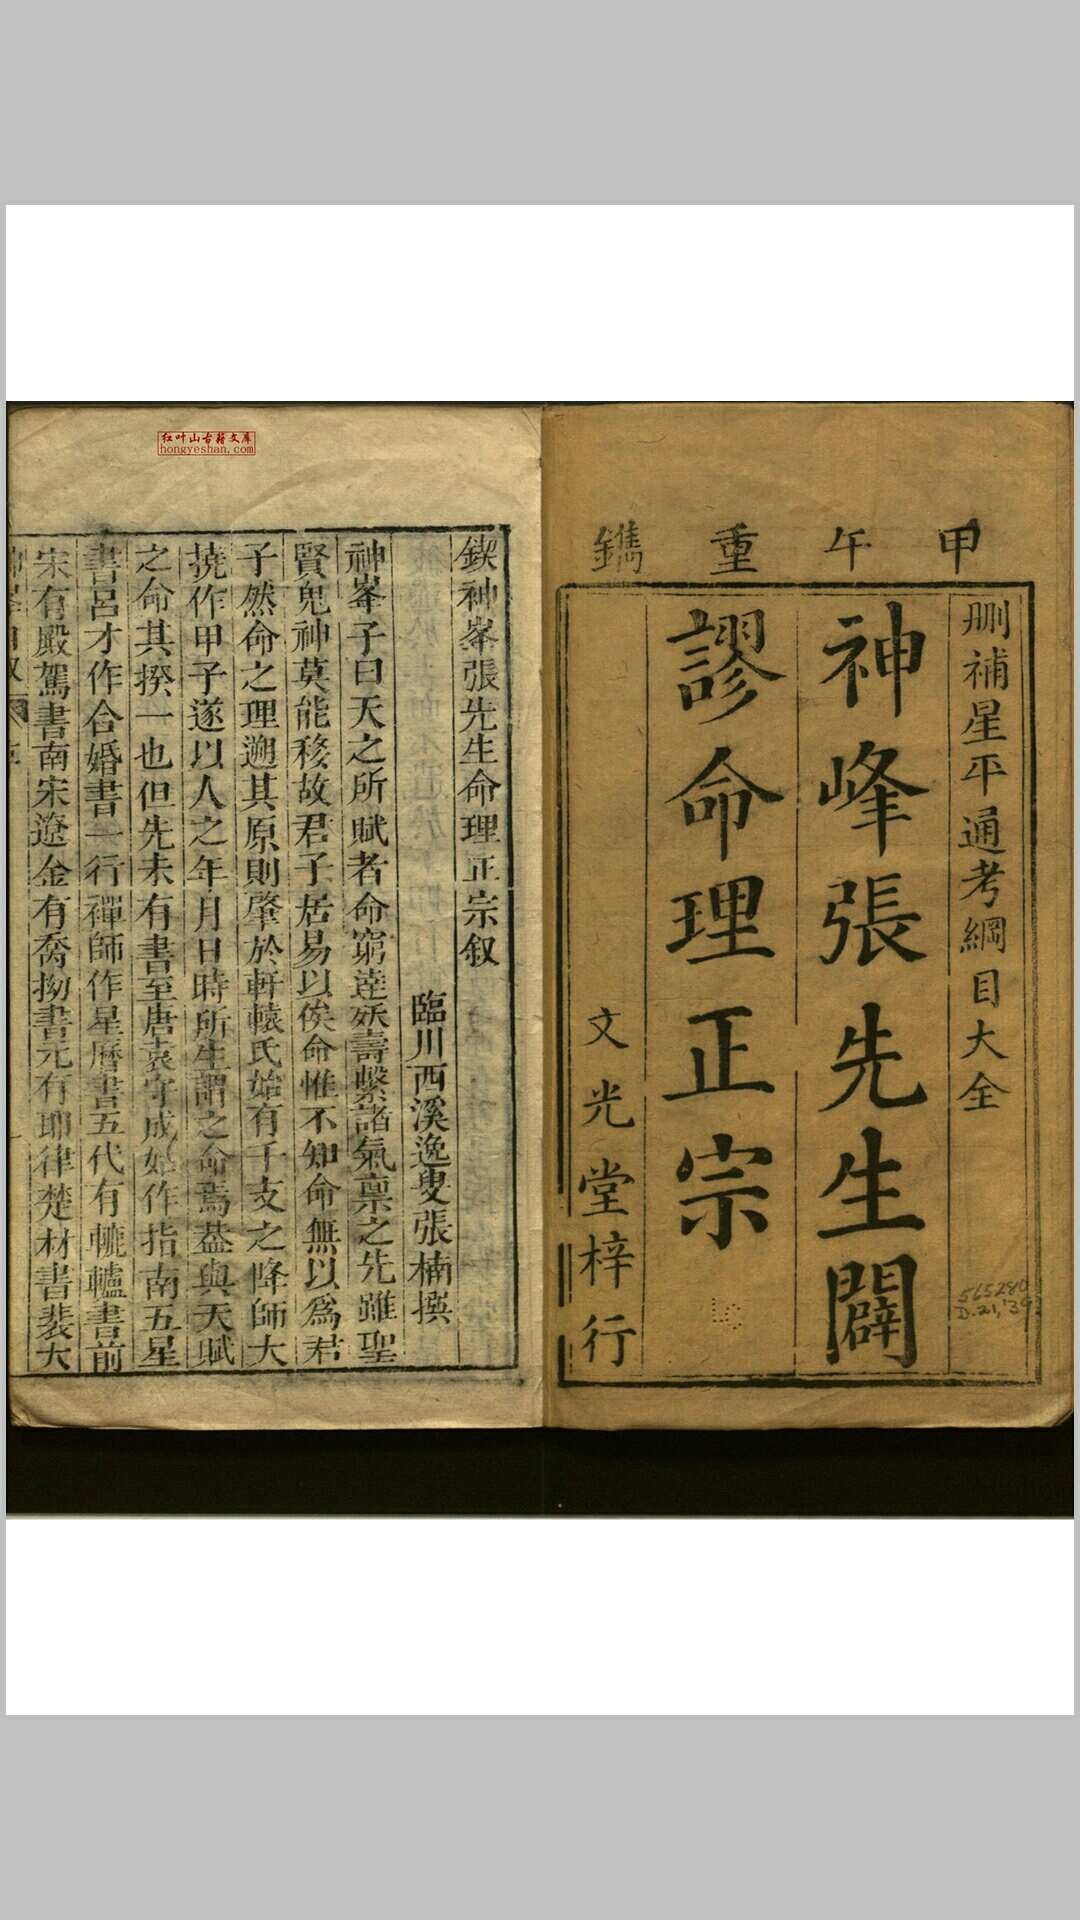 红叶山古籍文库
hongyeshan.com
甲午重鐫
删補星平通考綱目大全
神峰張先生闢
謬命理正宗
文光堂梓行
565280
D.21,'39
鍥神峯張先生命理正宗叙
臨川西溪逸叟張楠撰
神峯子曰天之所賦者命窮逹殀壽繫諸氣禀之先雖聖
賢鬼神莫能移故君子居易以俟命惟不知命無以爲君
子然命之理遡其原則肇於軒轅氏始有干支之降師大
撓作甲子遂以人之年月日時所生謂之命焉葢與天賦
之命其揆一也但先未有書至唐袁守成始作指南五星
書呂才作合婚書一行禪師作星曆書五代有轆轤書前
宋有殿駕書南宋遼金有喬拗書元有耶律楚材書裴大